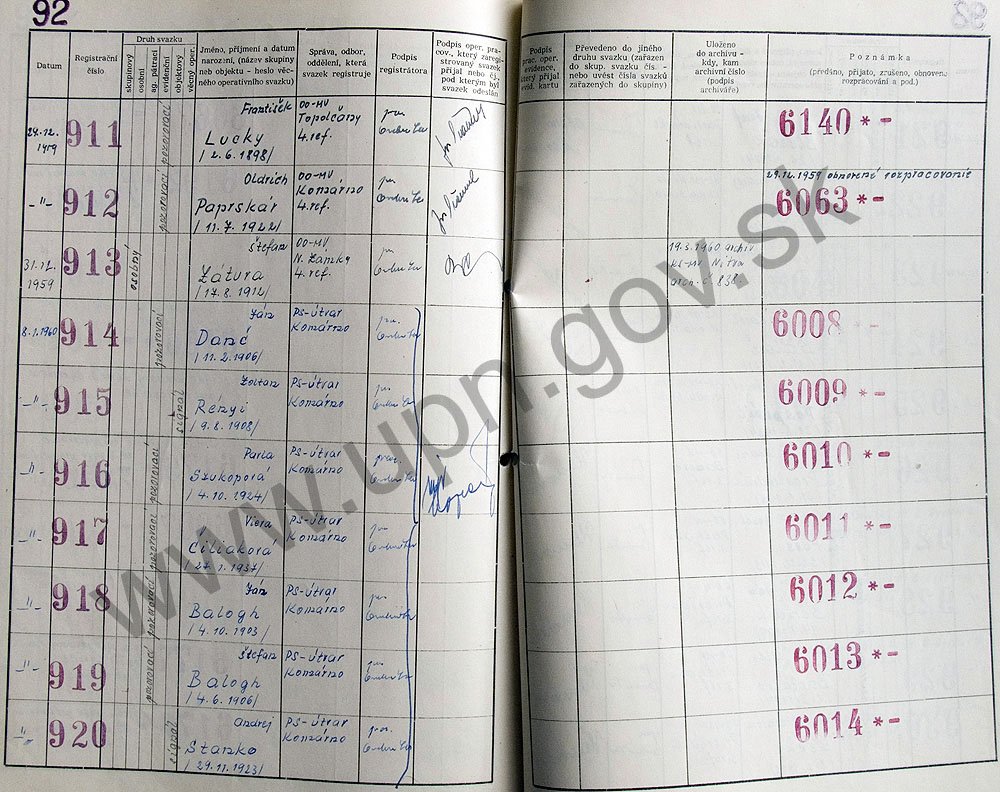 92
Datum
Registrační
číslo
Druh svazku
skupinový
osobní
sg. pátrací
evidenční
objektový
věcný oper.
Jméno, příjmení a datum
narození, (název skupiny
neb objektu - heslo věc-
ného operativního svazku)
Správa, odbor,
oddělení, která
svazek registruje
Podpis
registrátora
Podpis oper. pra-
cov., který zaregi-
strovaný svazek
přijal nebo čj.,
pod kterým byl
svazek odeslán
Podpis
prac. oper.
evidence,
který přijal
evid. kartu
Převedeno do jiného
druhu svazku (zařazen
do skup. svazku čís. -
nebo uvést čísla svazků
zařazených do skupiny)
Uloženo
do archivu -
kdy, kam
archivní číslo
(podpis
archiváře)
Poznámka
(předáno, přijato, zrušeno, obnoveno
rozpracování a pod.)
24.12.
1959
911
pozorovací
František
Lucky
/2.6.1898/
OO-MV
Topolčany
4. ref.
6140 * -
-"-
912
pozorovací
Oldrich
Paprskár
/11.7.1922/
OO-MV
Komárno
4. ref.
29.12.1959 obnovené rozpracovanie
6063 * -
31.12.
1959
913
osobný
Štefan
Zátura
/17.8.1912/
OO-MV
N. Zámky
4. ref.
19.3.1960 archív
KS-MV Nitra
arch. č. 838.
8.1.1960
914
pozorovací
Ján
Danč
/11.2.1906/
PS-útvar
Komárno
6008 -
-"-
915
signál
Zoltan
Rényi
/9.8.1908/
PS-útvar
Komárno
6009 * -
-"-
916
pozorovací
Pavla
Szukopová
/4.10.1924/
PS-útvar
Komárno
6010 * -
-"-
917
pozorovací
Viera
Čiliaková
/27.1.1937/
PS-útvar
Komárno
6011 * -
-"-
918
pozorovací
Ján
Balogh
/4.10.1903/
PS-útvar
Komárno
6012 * -
-"-
919
pozorovací
Štefan
Balogh
/4.6.1906/
PS-útvar
Komárno
6013 * -
-"-
920
signál
Andrej
Stanko
/29.11.1923/
PS-útvar
Komárno
6014 * -
www.upn.gov.sk